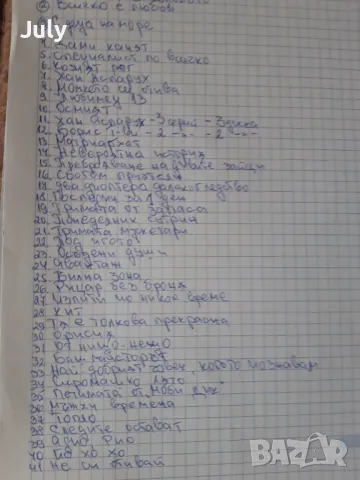 ② Всичко е любов
деца на море
4. Зами кацът
5. Специалист по всичко
6. Козият рог
7. Хан Аспарух
8. Момчето си отива
9. Любимец 13
10. Осмият
11. Хан Аспарух - 3 серии - 3 диска
12. Борис I-ви - 2 - " - 2 - " -
13. Матриархат
14. Невероятна история
15. Преброяване на дивите зайци
16. С любов приятели
17. Два диоптера далекогледство
18. Последни за 1 ден
19. Тримата от запаса
20. Понеделник сутрин
21. Тримата мускетари
22. Под игото
23. Осъдени души
24. Авантаж
25. Вилна зона
26. Рицар без броня
27. Изпити по никое време
28. Кит
29. Тя е толкова прекрасна
30. Орисия
31. От нищо нещо
32. Баш майсторът
33. Най добрият човек, когото познавам
34. Сиромашко лято
35. Петимата от Моби Дик
36. Мъжки времена
37. Топло
38. Следите остават
39. Адио Рио
40. Йо хо хо
41. Не си отивай
Bazar
BAZAR.bg